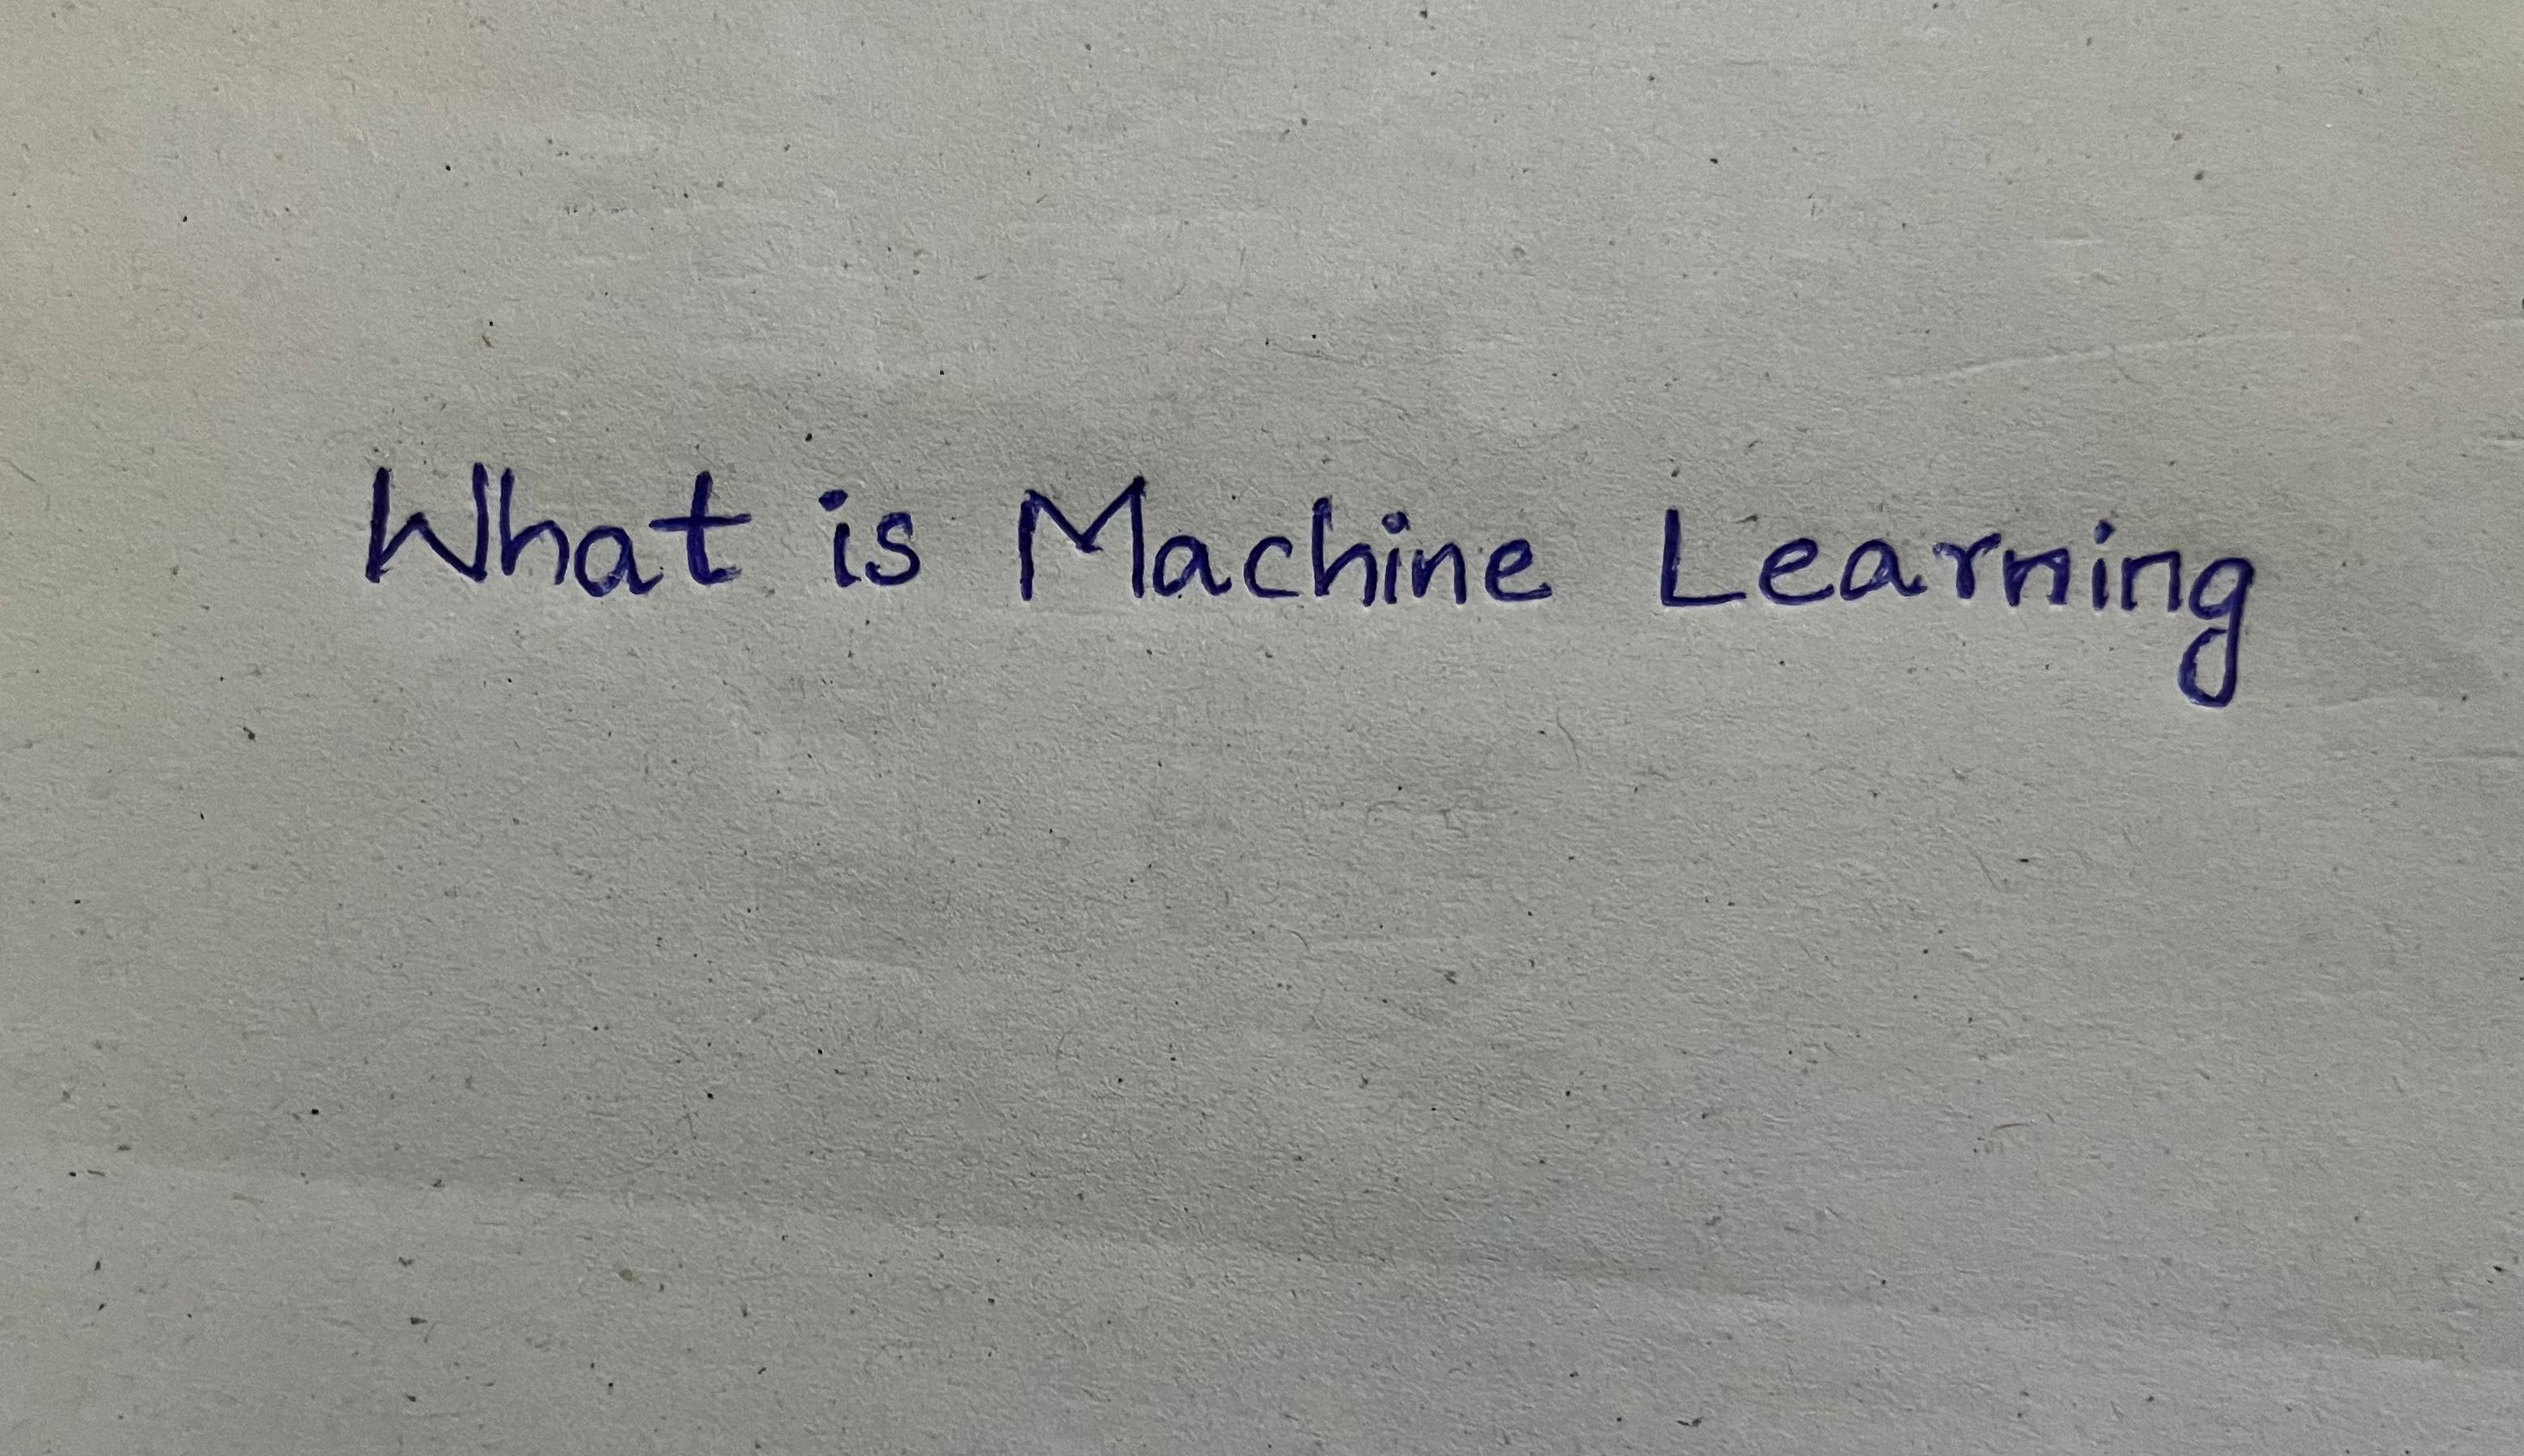 What is Machine Learning